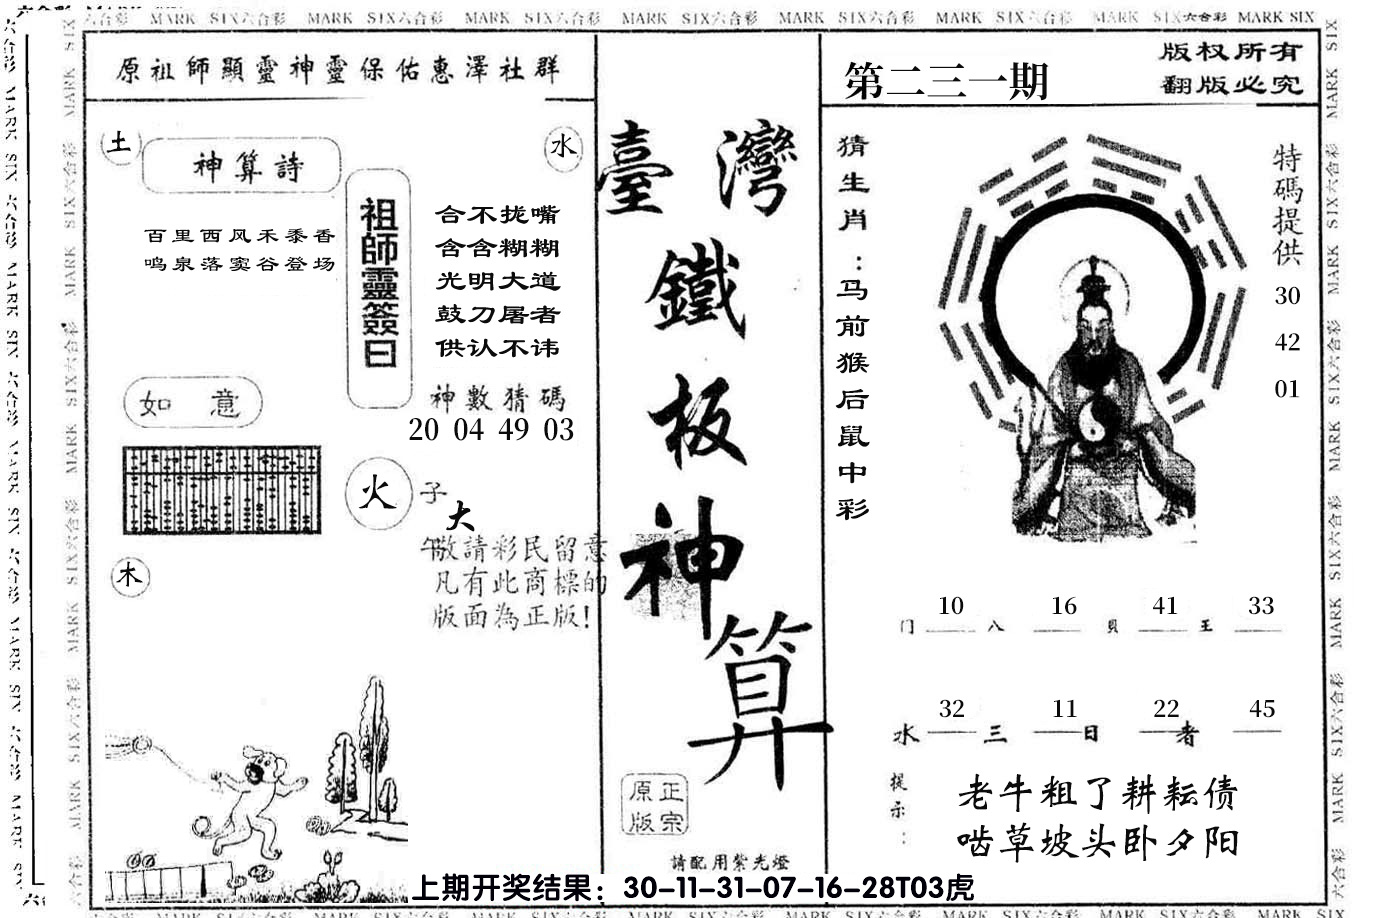 MARK SIX六合彩 MARK SIX六合彩 MARK SIX六合彩 MARK SIX六合彩 MARK SIX六合彩 MARK SIX六合彩 MARK SIX六合彩 MARK SIX
原祖師顯靈神靈保佑惠澤社群
土
神算詩
水
百里西风禾黍香
鸣泉落窦谷登场
祖師靈簽曰
合不拢嘴
含含糊糊
光明大道
鼓刀屠者
供认不讳
如意
神數猜碼
20 04 49 03
火
子
大
午
敬請彩民留意
凡有此商標的
版面為正版!
木
臺灣
鐵
板
神
算
原正
版宗
請配用紫光燈
第二三一期
版权所有
翻版必究
猜生肖：马前猴后鼠中彩
特碼提供
30
42
01
10 16 41 33
门 八 貝 王
32 11 22 45
水 三 日 者
提示：
老牛粗了耕耘债
啮草坡头卧夕阳
上期开奖结果：30-11-31-07-16-28T03虎